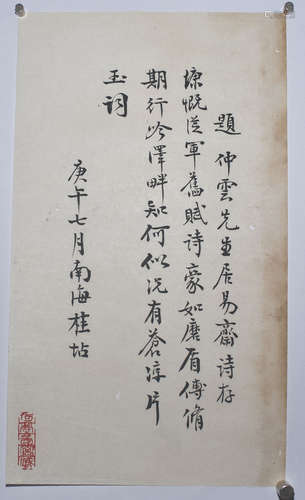 題仲雲先生居易齋詩存
慷慨從軍舊賦詩豪如磨盾傅脩
期行吟澤畔知何似況有蒼涼片
玉詞
庚午七月南海桂坫